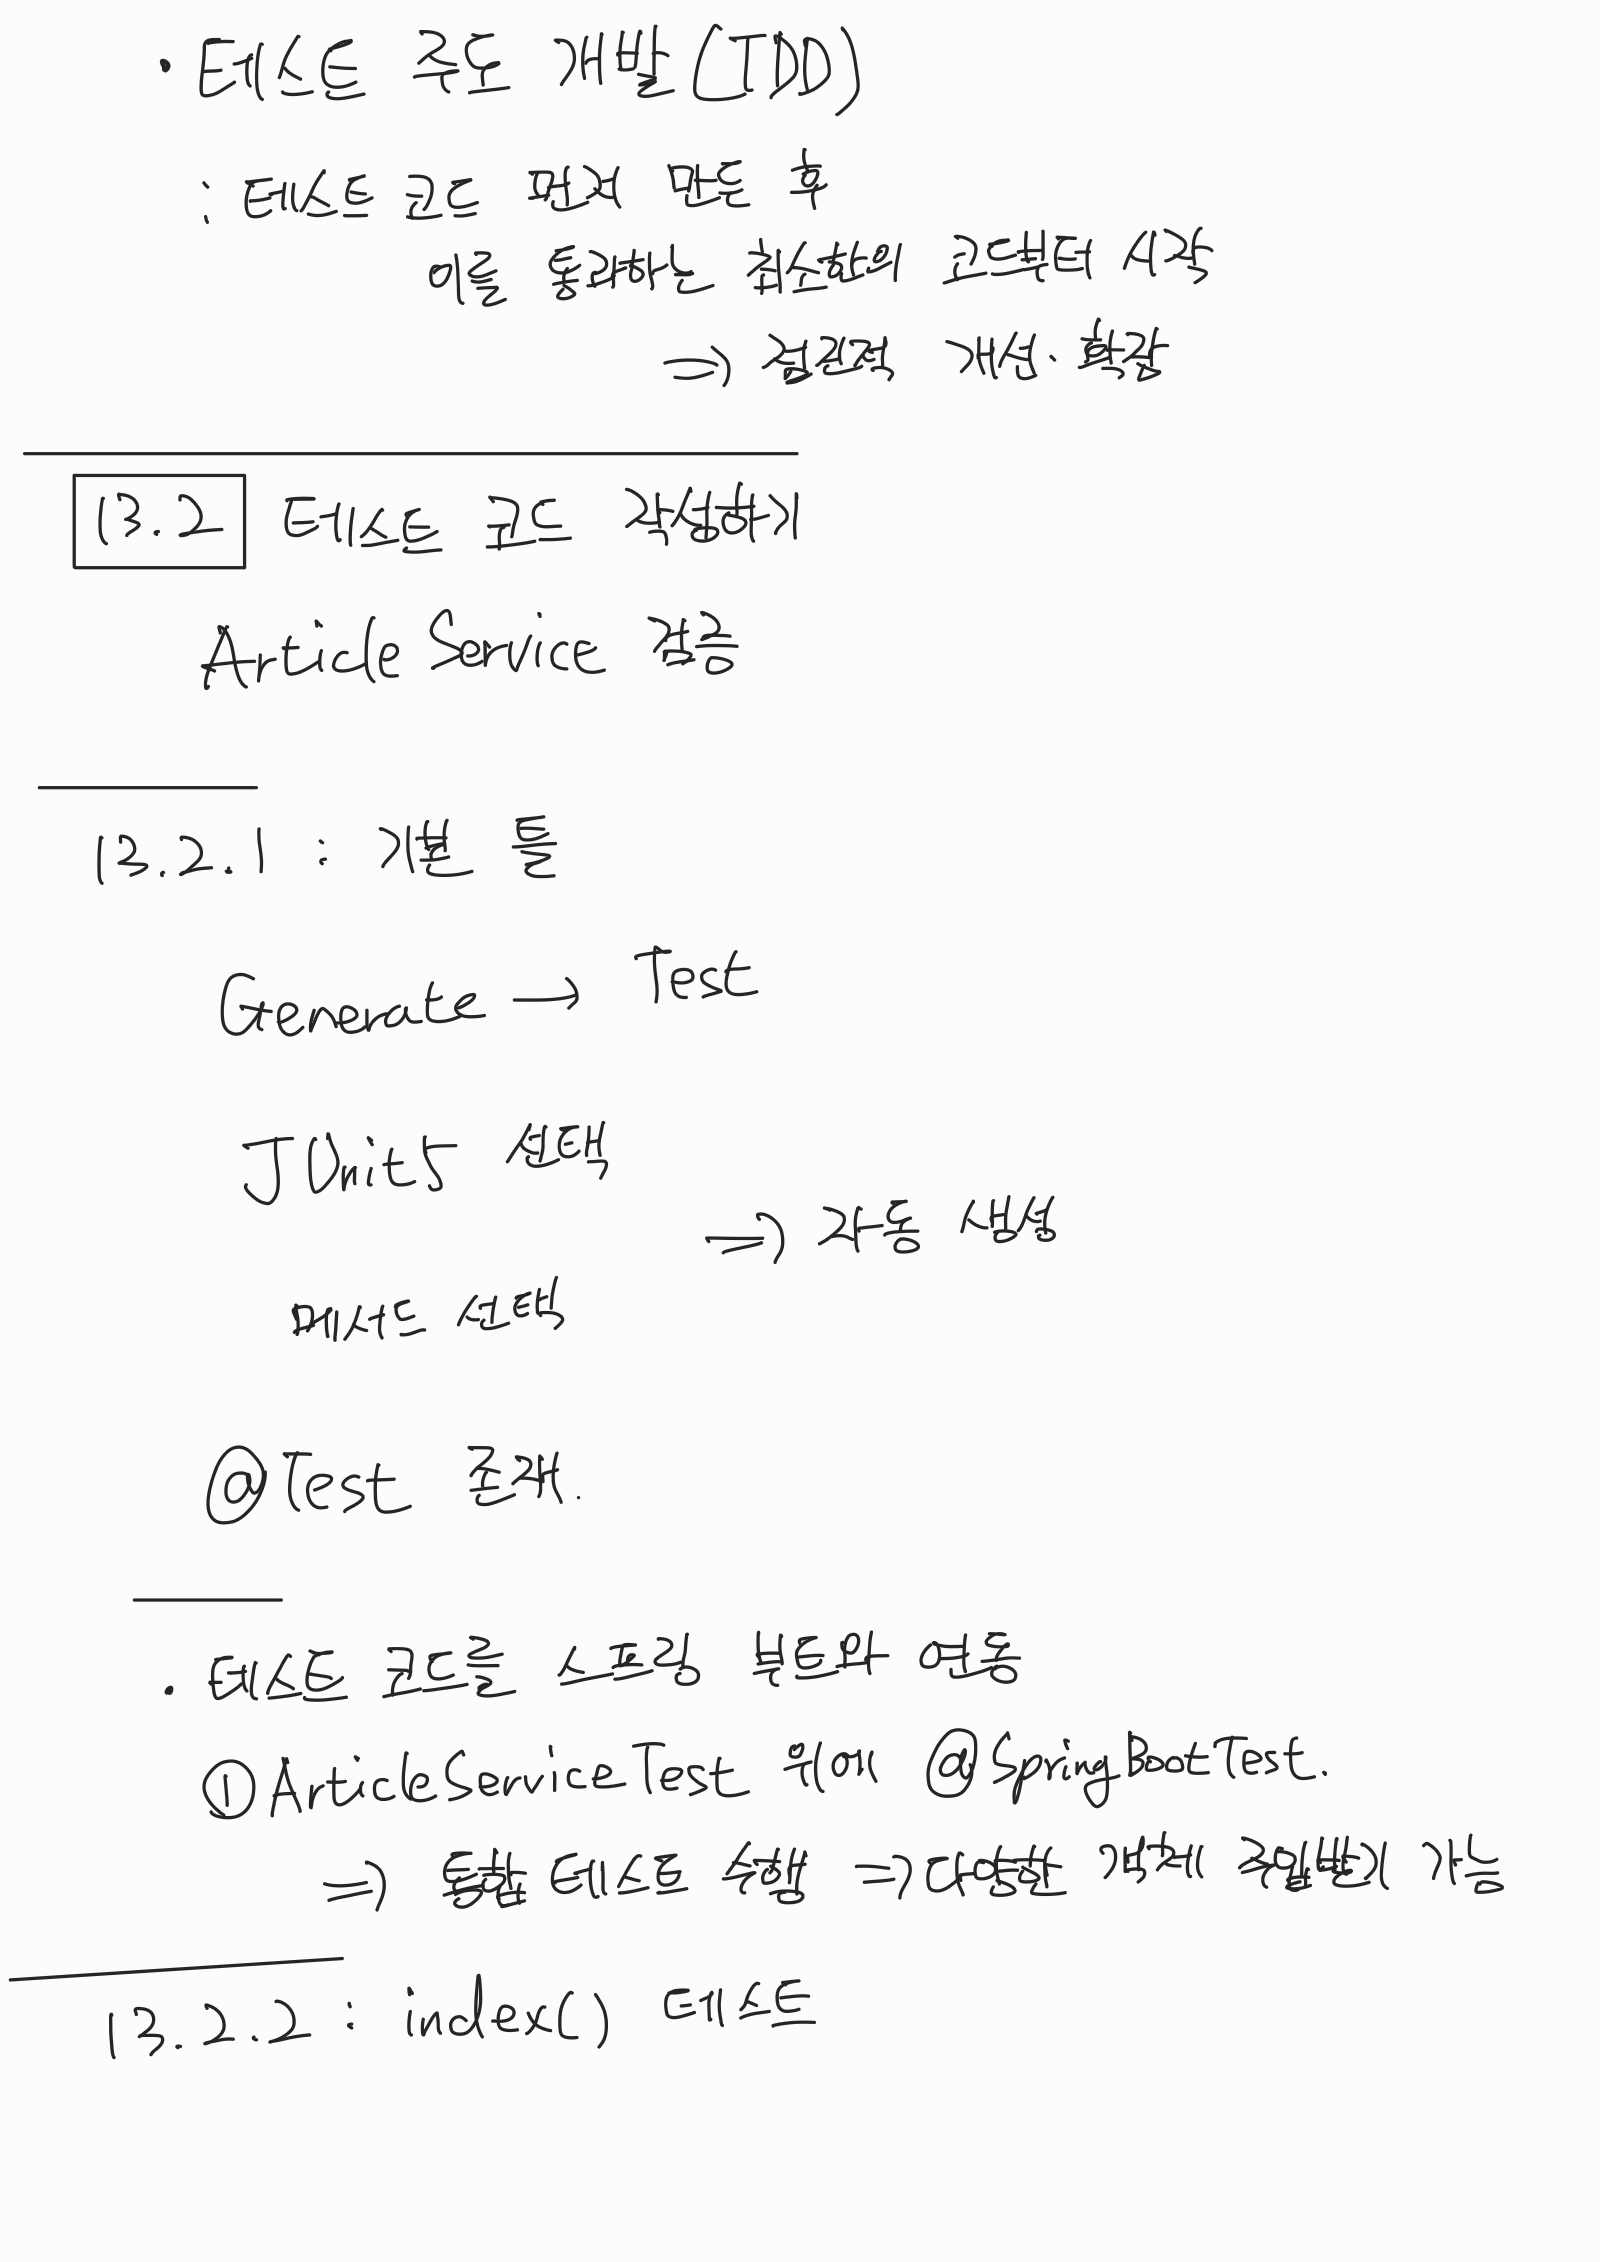 · 테스트 주도 개발 (TDD)
: 테스트 코드 먼저 만든 후
이를 통과하는 최소한의 코드부터 시작
⇒ 점진적 개선·확장
13.2 테스트 코드 작성하기
Article Service 검증
13.2.1 : 기본 틀
Generate → Test
JUnit5 선택
⇒ 자동 생성
메서드 선택
@Test 존재.
· 테스트 코드를 스프링 부트와 연동
① ArticleServiceTest 위에 @SpringBootTest.
⇒ 통합 테스트 수행 ⇒ 다양한 객체 주입받기 가능
13.2.2 : index() 테스트